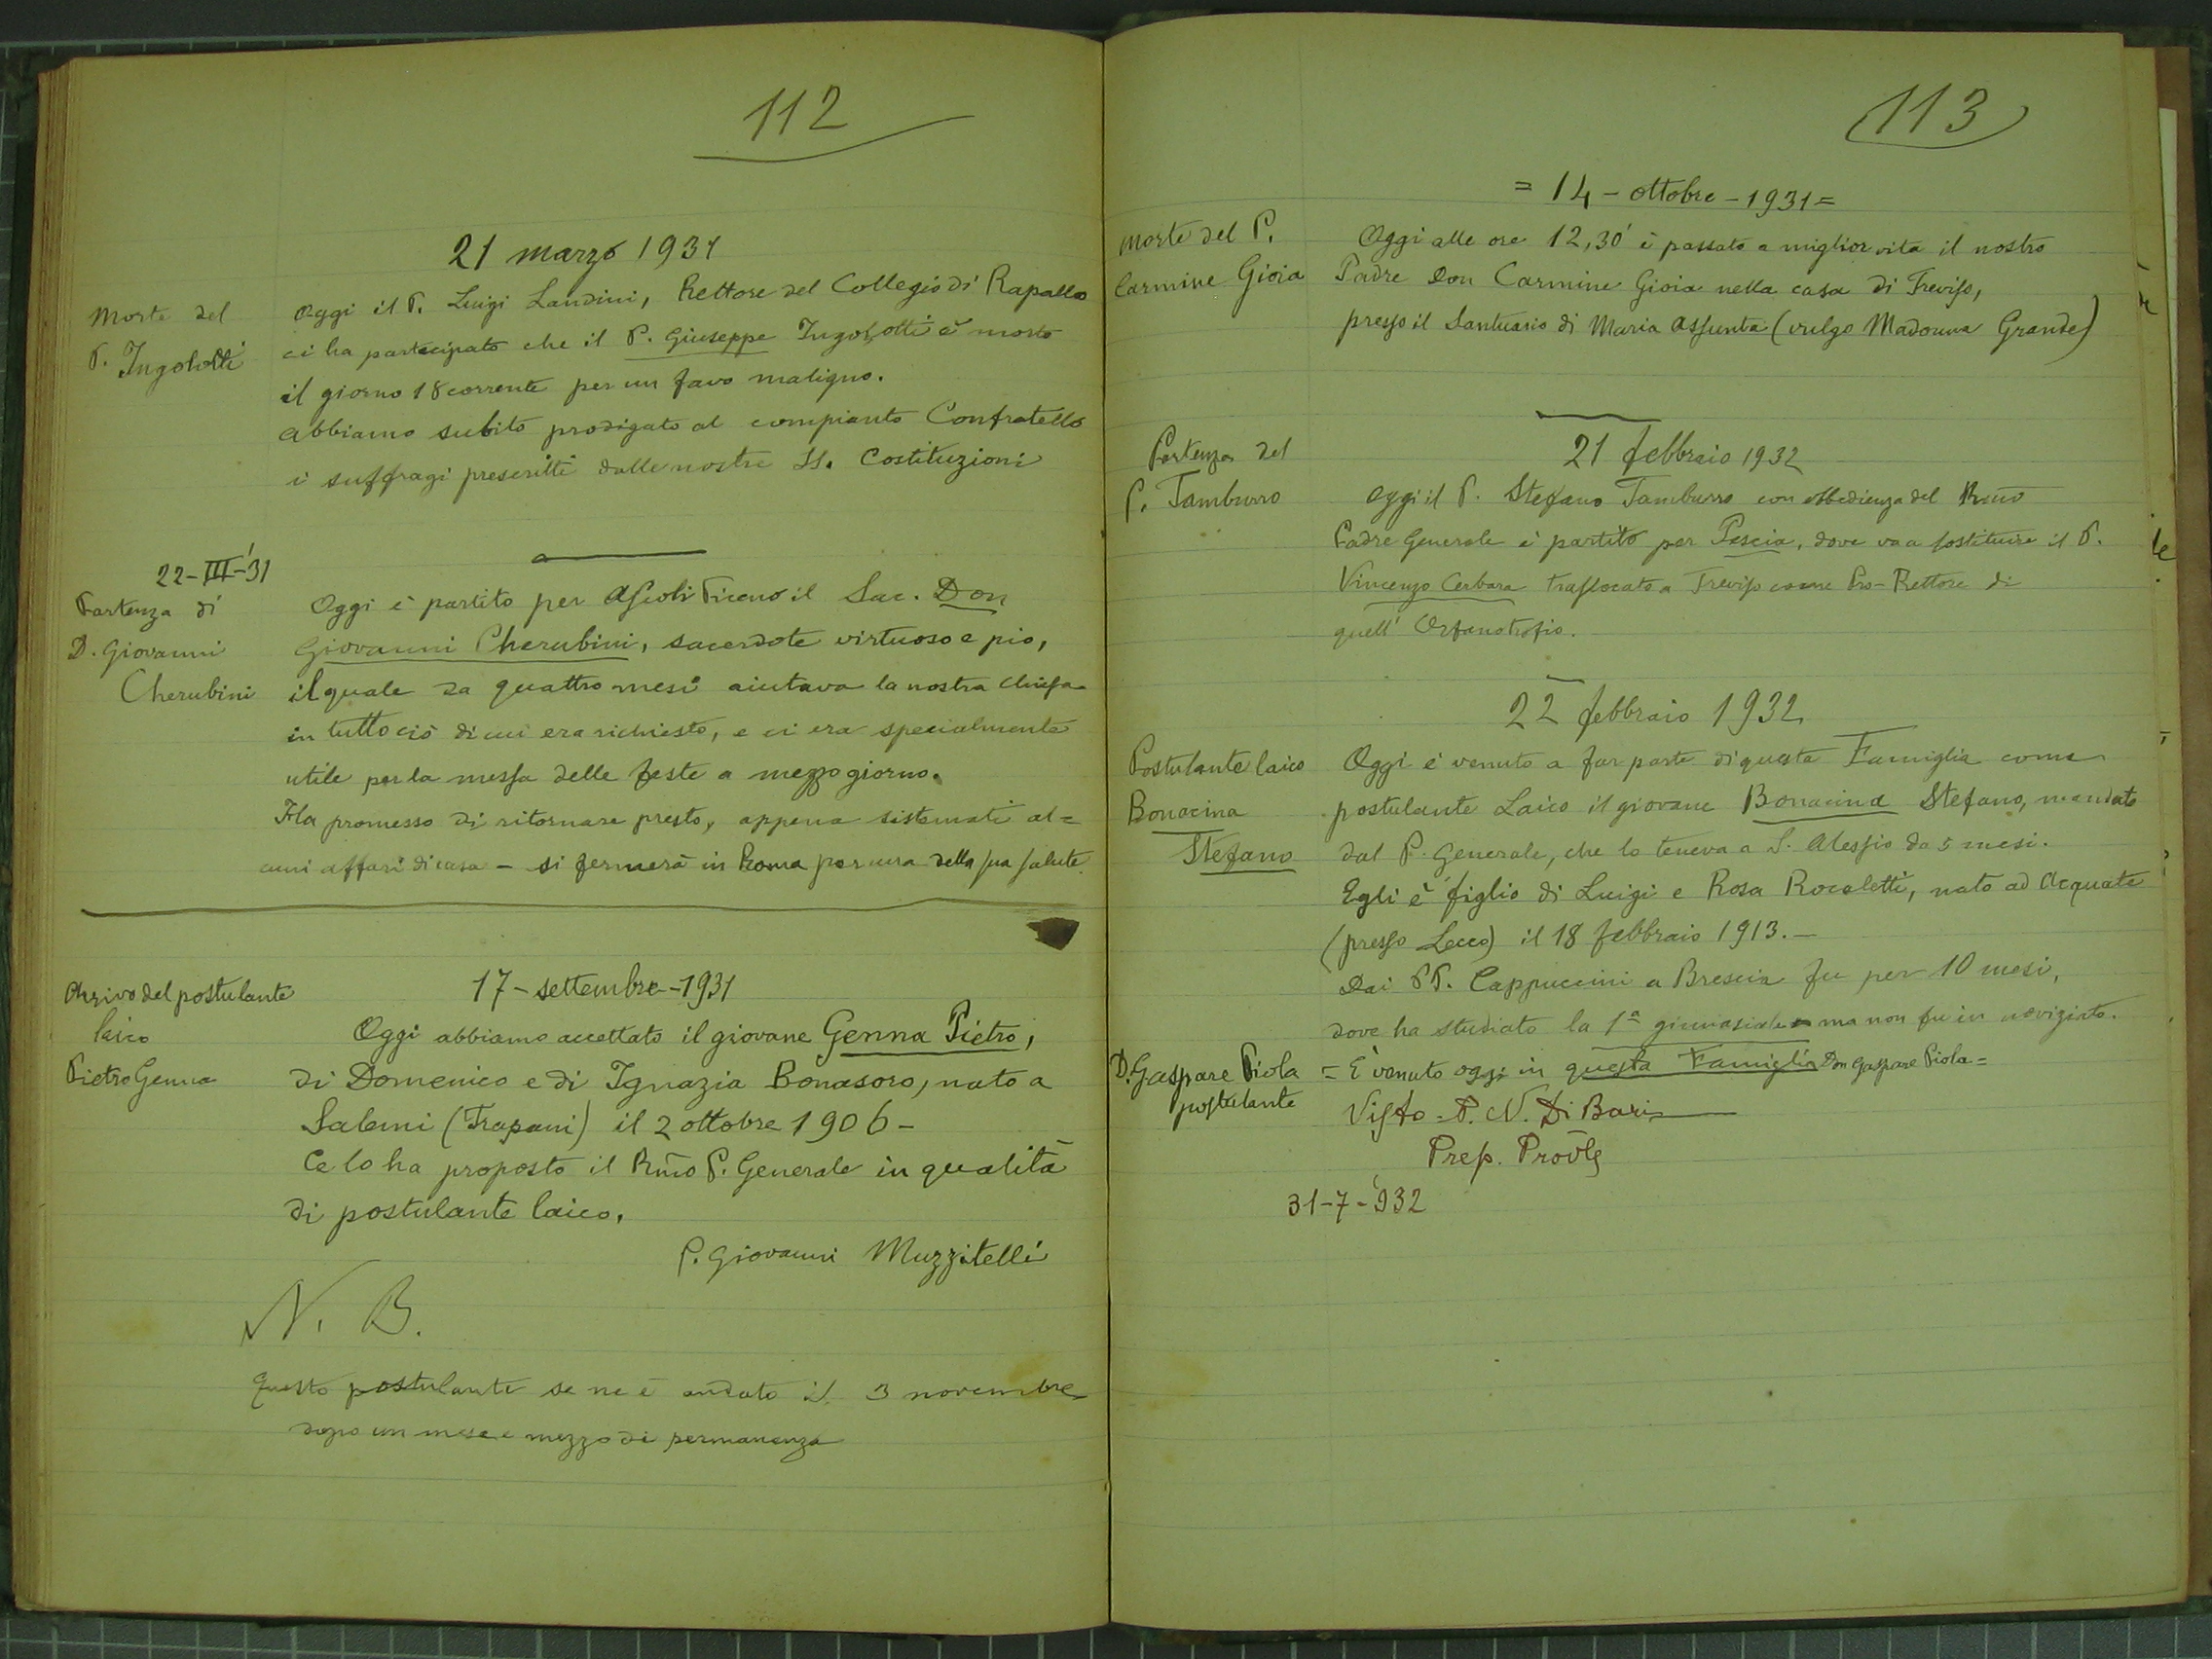 112
21 marzo 1931
Morte del
P. Ingolotti
Oggi il P. Luigi Landini, Rettore del Collegio di Rapallo
ci ha partecipato che il P. Giuseppe Ingolotti è morto
il giorno 18 corrente per un favo maligno.
Abbiamo subito prodigato al compianto Confratello
i suffragi prescritti dalle nostre SS. Costituzioni
22-III-'31
Partenza di
D. Giovanni
Cherubini
Oggi è partito per Ascoli Piceno il Sac. Don
Giovanni Cherubini, sacerdote virtuoso e pio,
il quale da quattro mesi aiutava la nostra chiesa
in tutto ciò di cui era richiesto, e ci era specialmente
utile per la messa delle feste a mezzogiorno.
Ha promesso di ritornare presto, appena sistemati al=
cuni affari di casa - si fermerà in Roma per cura della sua salute.
Arrivo del postulante
laico
Pietro Genna
17-settembre-1931
Oggi abbiamo accettato il giovane Genna Pietro,
di Domenico e di Ignazia Bonasoro, nato a
Salemi (Trapani) il 2 ottobre 1906-
Ce lo ha proposto il Rmo P. Generale in qualità
di postulante laico.
P. Giovanni Muzzitelli
N. B.
Questo postulante se ne è andato il 3 novembre
dopo un mese e mezzo di permanenza
113
= 14 - ottobre - 1931 =
Morte del P.
Carmine Gioia
Oggi alle ore 12,30' è passato a miglior vita il nostro
Padre Don Carmine Gioia nella casa di Treviso,
presso il Santuario di Maria Assunta (vulgo Madonna Grande)
21 febbraio 1932
Partenza del
P. Tamburro
Oggi il P. Stefano Tamburro con obbedienza del Rmo
Padre Generale è partito per Pescia, dove va a sostituire il P.
Vincenzo Cerbara traslocato a Treviso come Pro-Rettore di
quell'Orfanotrofio.
22 febbraio 1932
Postulante laico
Bonacina
Stefano
Oggi è venuto a far parte di questa Famiglia come
postulante Laico il giovane Bonacina Stefano, mandato
dal P. Generale, che lo teneva a S. Alessio da 5 mesi.
Egli è figlio di Luigi e Rosa Rocaletti, nato ad Acquate
(presso Lecco) il 18 febbraio 1913.-
Dai PP. Cappuccini a Brescia fu per 10 mesi,
dove ha studiato la 1ª ginnasiale ma non fu in noviziato.
D. Gaspare Piola
postulante
= È venuto oggi in questa Famiglia Don Gaspare Piola=
Visto = P. N. Di Bari
Prep. Provle
31-7-'932